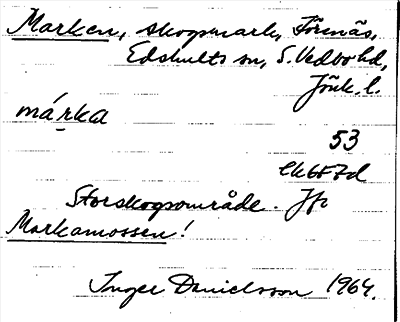 Marken, skogsmark, Förenäs,
Edshults sn, S. Vedbo hd,
Jönk. l.
márka
53
ek6f7d
Storskogsområde. Jfr
Markamossen!
Inger Danielsson 1964.